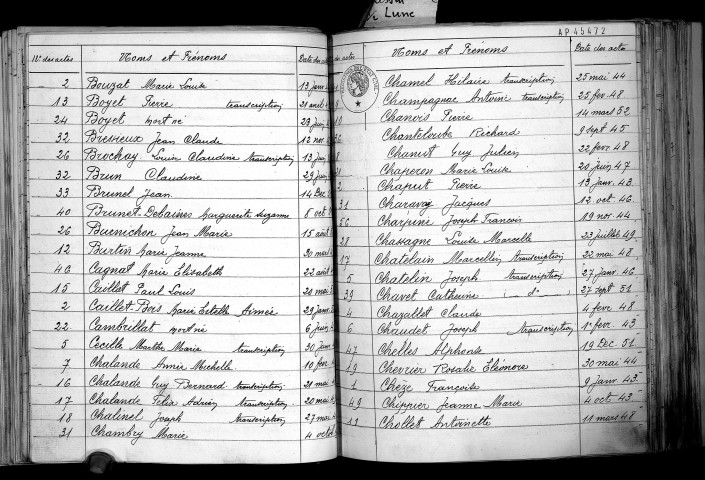 de Lunc
AP45472
Nos des actes Noms et Prénoms Date des actes
2 Bouzat Marie Louise 13 janv
13 Boyet Pierre transcription
24 Boyet mort né
32 Bressieux Jean Claude 12 nov
26 Brochay Louis Claudine transcription 13
32 Brun Claudine 29
33 Brunel Jean 14 Dec
40 Brunet Debaines Marguerite Suzanne 8 oct
26 Buenichen Jean Marie 15 août
12 Burtin Marie Jeanne 20
40 Cagnat Marie Elisabeth 22 août
15 Caillet Paul Louis 20
2 Caillet-Bois Marie Estelle Aimée 29 janv
22 Cambrillat mort né 6
5 Cecille Marthe Marie transcription 30
7 Chalande Aimée Michelle 10 fev
16 Chalande Guy Bernard transcription 21
17 Chalande Félix Adrien transcription 20
18 Chalinel Joseph transcription 27
31 Chambry Marie 4 octob
des actes Noms et Prénoms Date des actes
Chamel Hilaire transcription 25 mai 44
Champagnac Antoine transcription 25 fev 48
10 Chanois Pierre 14 mars 52
36 Chanteloube Richard 9 sept 45
8 Chanut Guy Julien 22 fev 48
21 Chaperon Marie Louise 20 juin 47
2 Chaput Pierre 13 janv. 43
31 Charavay Jacques 12 oct 46
56 Charpine Joseph François 19 nov 44
28 Chassagne Louise Marcelle 23 juillet 49
17 Chatelain Marcellin transcription 22 mai 48
5 Chatelin Joseph transcription 27 janv 46
39 Chavet Catherine - d° - 27 sept 51
4 Chazallet Claude 4 fevr 48
6 Chaudet Joseph transcription 1er fevr. 45
47 Chelles Alphonse 19 Dec 51
19 Chevrier Rosalie Eléonore 30 mai 44
1 Chèze Françoise 9 janv 43
49 Chippier Jeanne Marie 4 oct 43
11 Chollet Antoinette 11 mars 48